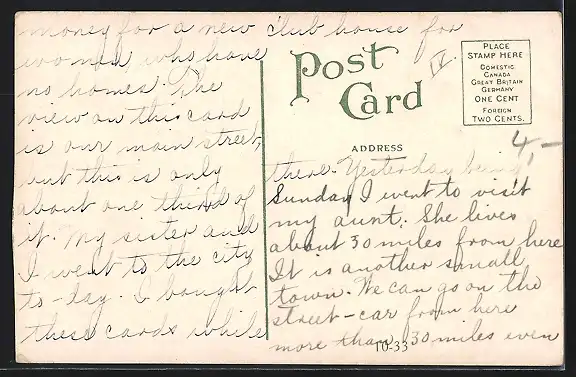 money for a new club house for
women who have
no homes. The
view on this card
is our main street,
but this is only
about one third of
it. My sister and
I went to the city
to-day. I bought
these cards while
Post Card
PLACE
STAMP HERE
DOMESTIC
CANADA
GREAT BRITAIN
GERMANY
ONE CENT
FOREIGN
TWO CENTS.
4,-
ADDRESS
there. Yesterday being
Sunday I went to visit
my aunt. She lives
about 30 miles from here
It is another small
town. We can go on the
street-car from here
more than 30 miles even
TO-33